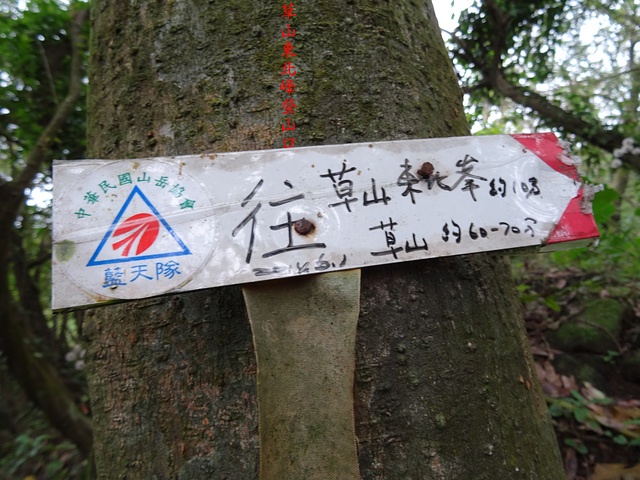 草山東北峰登山口
中華民國山岳協會
藍天隊
往
草山東北峯約10分
草山 約60-70分